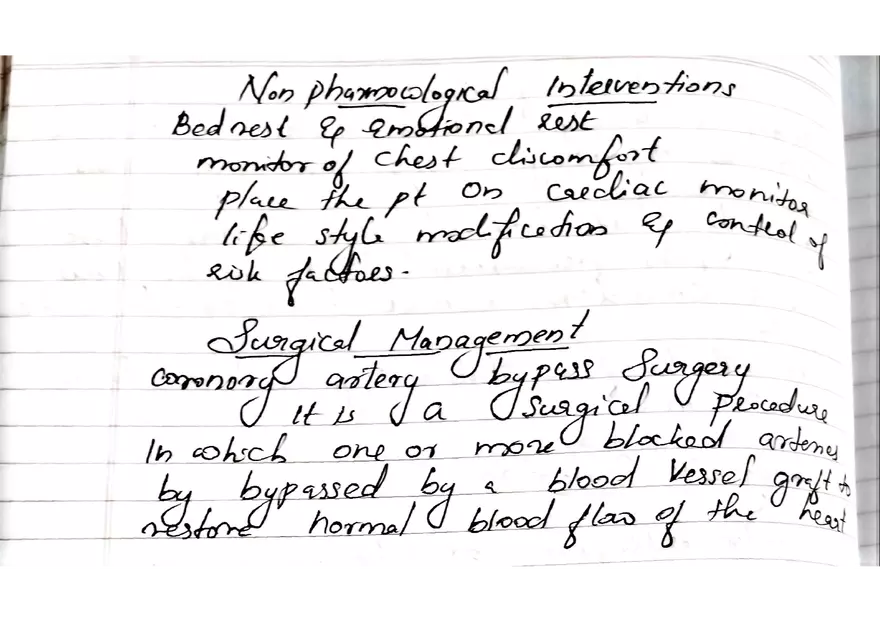 Non pharmocological Interventions
Bed rest & emotional rest
monitor of chest discomfort
place the pt on cardiac monitor
life style modification & control of
risk factors.
Surgical Management
coronory artery bypass Surgery
It is a surgical procedure
In which one or more blocked arteries
by bypassed by a blood vessel graft to
restore normal blood flow of the heart